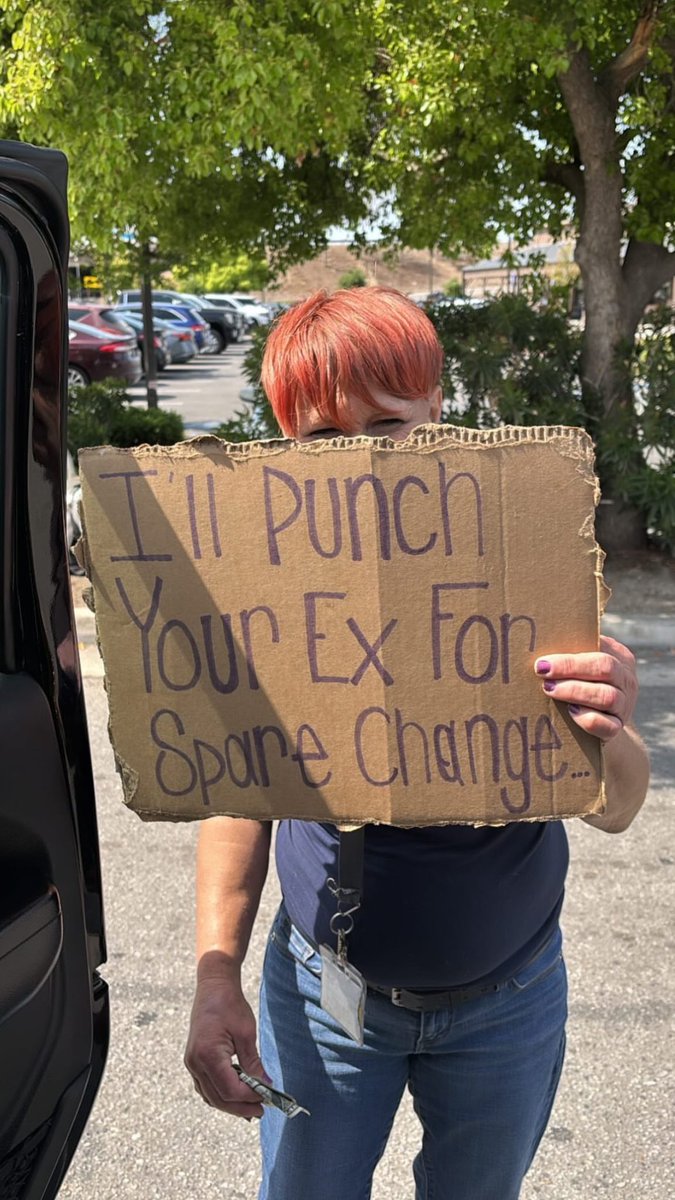 I'll Punch
Your Ex For
Spare Change...